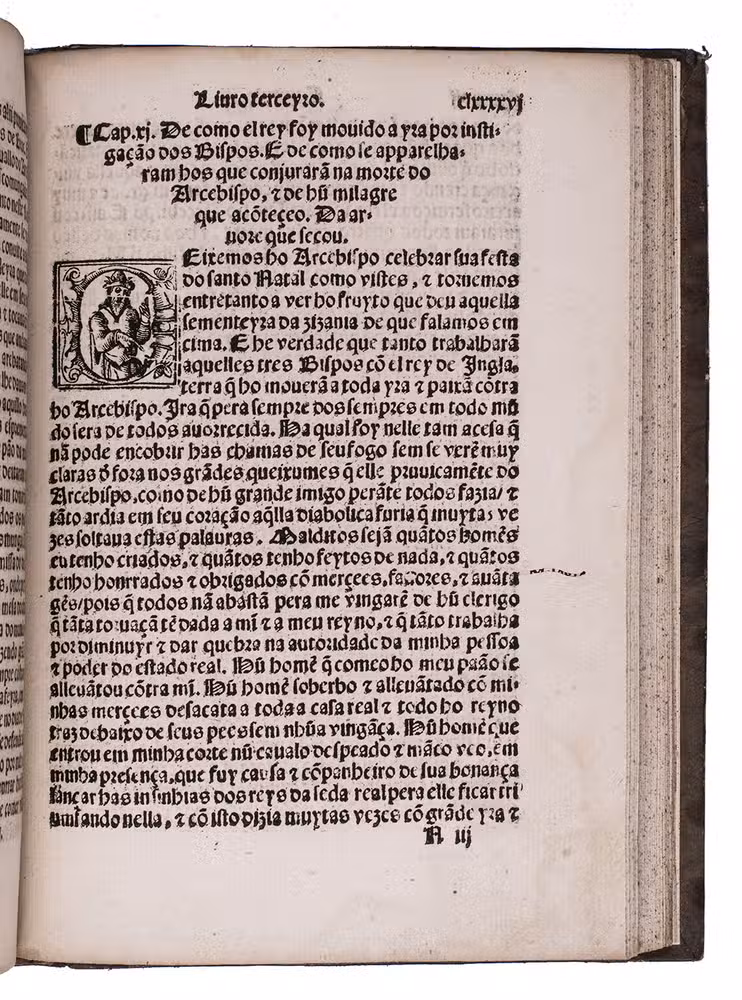 Liuro terceyro. clxxxxvj
¶ Cap.xj. De como el rey foy mouido a yra por insti-
gação dos Bispos. E de como se apparelha-
ram hos que conjurarã na morte do
Arcebispo, ⁊ de hũ milagre
que acõteçeo. Da ar-
uore que secou.
DEixemos ho Arcebispo celebrar sua festa
do santo Natal como vistes, ⁊ tornemos
entretanto a ver ho fruyto que deu aquella
sementeyra da zizania de que falamos em
cima. E he verdade que tanto trabalharã
aquelles tres Bispos cõ el rey de Ingla-
terra q̃ ho mouerã a toda yra ⁊ paixã cõtra
ho Arcebispo. Ira q̃ pera sempre dos sempres em todo mũ
do sera de todos auorrecida. Ha qual foy nelle tam acesa q̃
nã pode encobrir has chamas de seu fogo sem se verẽ muy
claras d̃ fora nos grãdes queixumes q̃ elle pruuicamẽte do
Arcebispo, como de hũ grande imigo perãte todos fazia/ ⁊
tãto ardia em seu coração aq̃lla diabolica furia q̃ muytas ve
zes soltaua estas palauras. Malditos sejã quãtos homẽs
eu tenho criados, ⁊ quãtos tenho feytos de nada, ⁊ quãtos
tenho honrrados ⁊ obrigados cõ merçees, fauores, ⁊ auãta
gẽs/ pois q̃ todos nã abastã pera me vingarẽ de hũ clerigo
q̃ tãta toruaçã tẽ dada a mĩ ⁊ a meu reyno, ⁊ q̃ tãto trabalha
por diminuyr ⁊ dar quebra na autoridade da minha pessoa
⁊ poder do estado real. Hũ homẽ q̃ comeo ho meu paão se
alleuãtou cõtra mĩ. Hũ homẽ soberbo ⁊ alleuãtado cõ mi-
nhas merçees desacata a toda a casa real ⁊ todo ho reyno
traz debaixo de seus pees sem nhũa vingãça. Hũ homẽ que
entrou em minha corte nũ caualo despeado ⁊ mãco veo, em
minha presença, que fuy causa ⁊ cõpanheiro de sua bonança
lançar has insinhias dos reys da seda real pera elle ficar tri
umfando nella, ⁊ cõ isto dizia muytas vezes cõ grãde yra ⁊
N iij